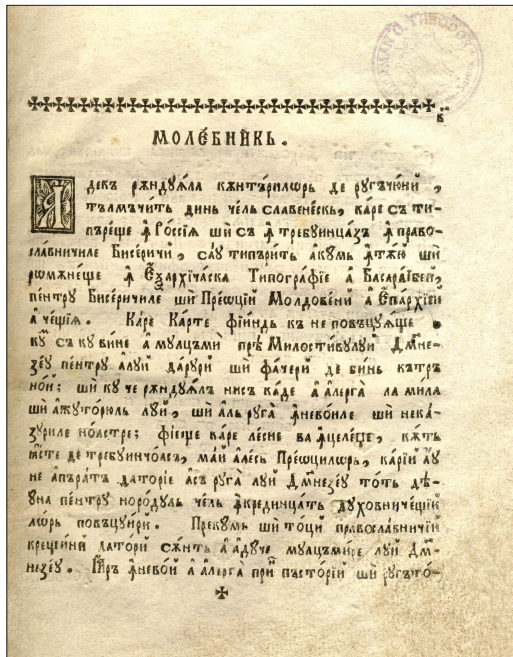 МОЛЕ́БНИКЬ.
Ꙟдекъ рѫндꙋѧла кѫнтърилѡрь де рꙋгъчю́нй,
тълмъчи́ть динь чель славене́скь, ка́ре съ ти-
пъре́ще ꙟ Рѡссі́ѧ шѝ съ ꙟтребꙋинца́зъ ꙟ право-
сла́вничиле Бисе́ричй, саꙋ типъри́ть акꙋ́мь ꙟтѫ́ю шѝ
рѡмѫне́ще ꙟ Еѯарხїча́ска Типогра́фїе а҆ Басара́бїей,
пе́нтрꙋ Бисе́ричиле шѝ Прео́цїй Молдове́нй а҆ Епа́рхїей
а҆че́щїѧ. Ка́ре Ка́рте фїи́ндь къ не повъцꙋѧ́ще
кꙋ́м съ кꙋви́не а҆ мꙋлцъмѝ пре́ Милости́вꙋлꙋй Дм҃не-
зе́ꙋ пе́нтрꙋ а҆лꙋ́й да́рꙋрй шѝ фа́черй де би́нь къ́тръ
но́й; шѝ кꙋ че рѫндꙋѧ́лъ ни́с ка́де а҆ а҆лерга̀ ла ми́ла
шѝ а҆жꙋто́рюль лꙋ́й, шѝ а҆ль рꙋга̀ ꙟнево́иле шѝ нека́-
зꙋриле ноа́стре; фїе́ще ка́ре ле́сне ва ꙟцеле́џе, кѫ́ть
ꙗ҆́сте де требꙋинчоа́съ, ма́й а҆ле́сь Прео́цилѡрь, ка́рїй а҆́ꙋ
не а҆пъра́тъ датори́е а҆съ рꙋга̀ лꙋ́й Дм҃незе́ꙋ то́ть дѣ-
ꙋ́на пе́нтрꙋ норо́дꙋль чель ꙟкредінца́ть дꙋхо́вничещїй
лѡ́рь повъцꙋи́рй. Прекꙋ́мь шѝ то́цй правосла́вничїй
крещи́нй дато́рй сѫ́нть а҆ а҆дꙋ́че мꙋлцъми́ре лꙋ́й Дм҃-
незе́ꙋ. Ꙗ҆́ръ ꙟнево́й а҆ а҆лерга̀ при́н пъсто́рїй шѝ рꙋгъто́-